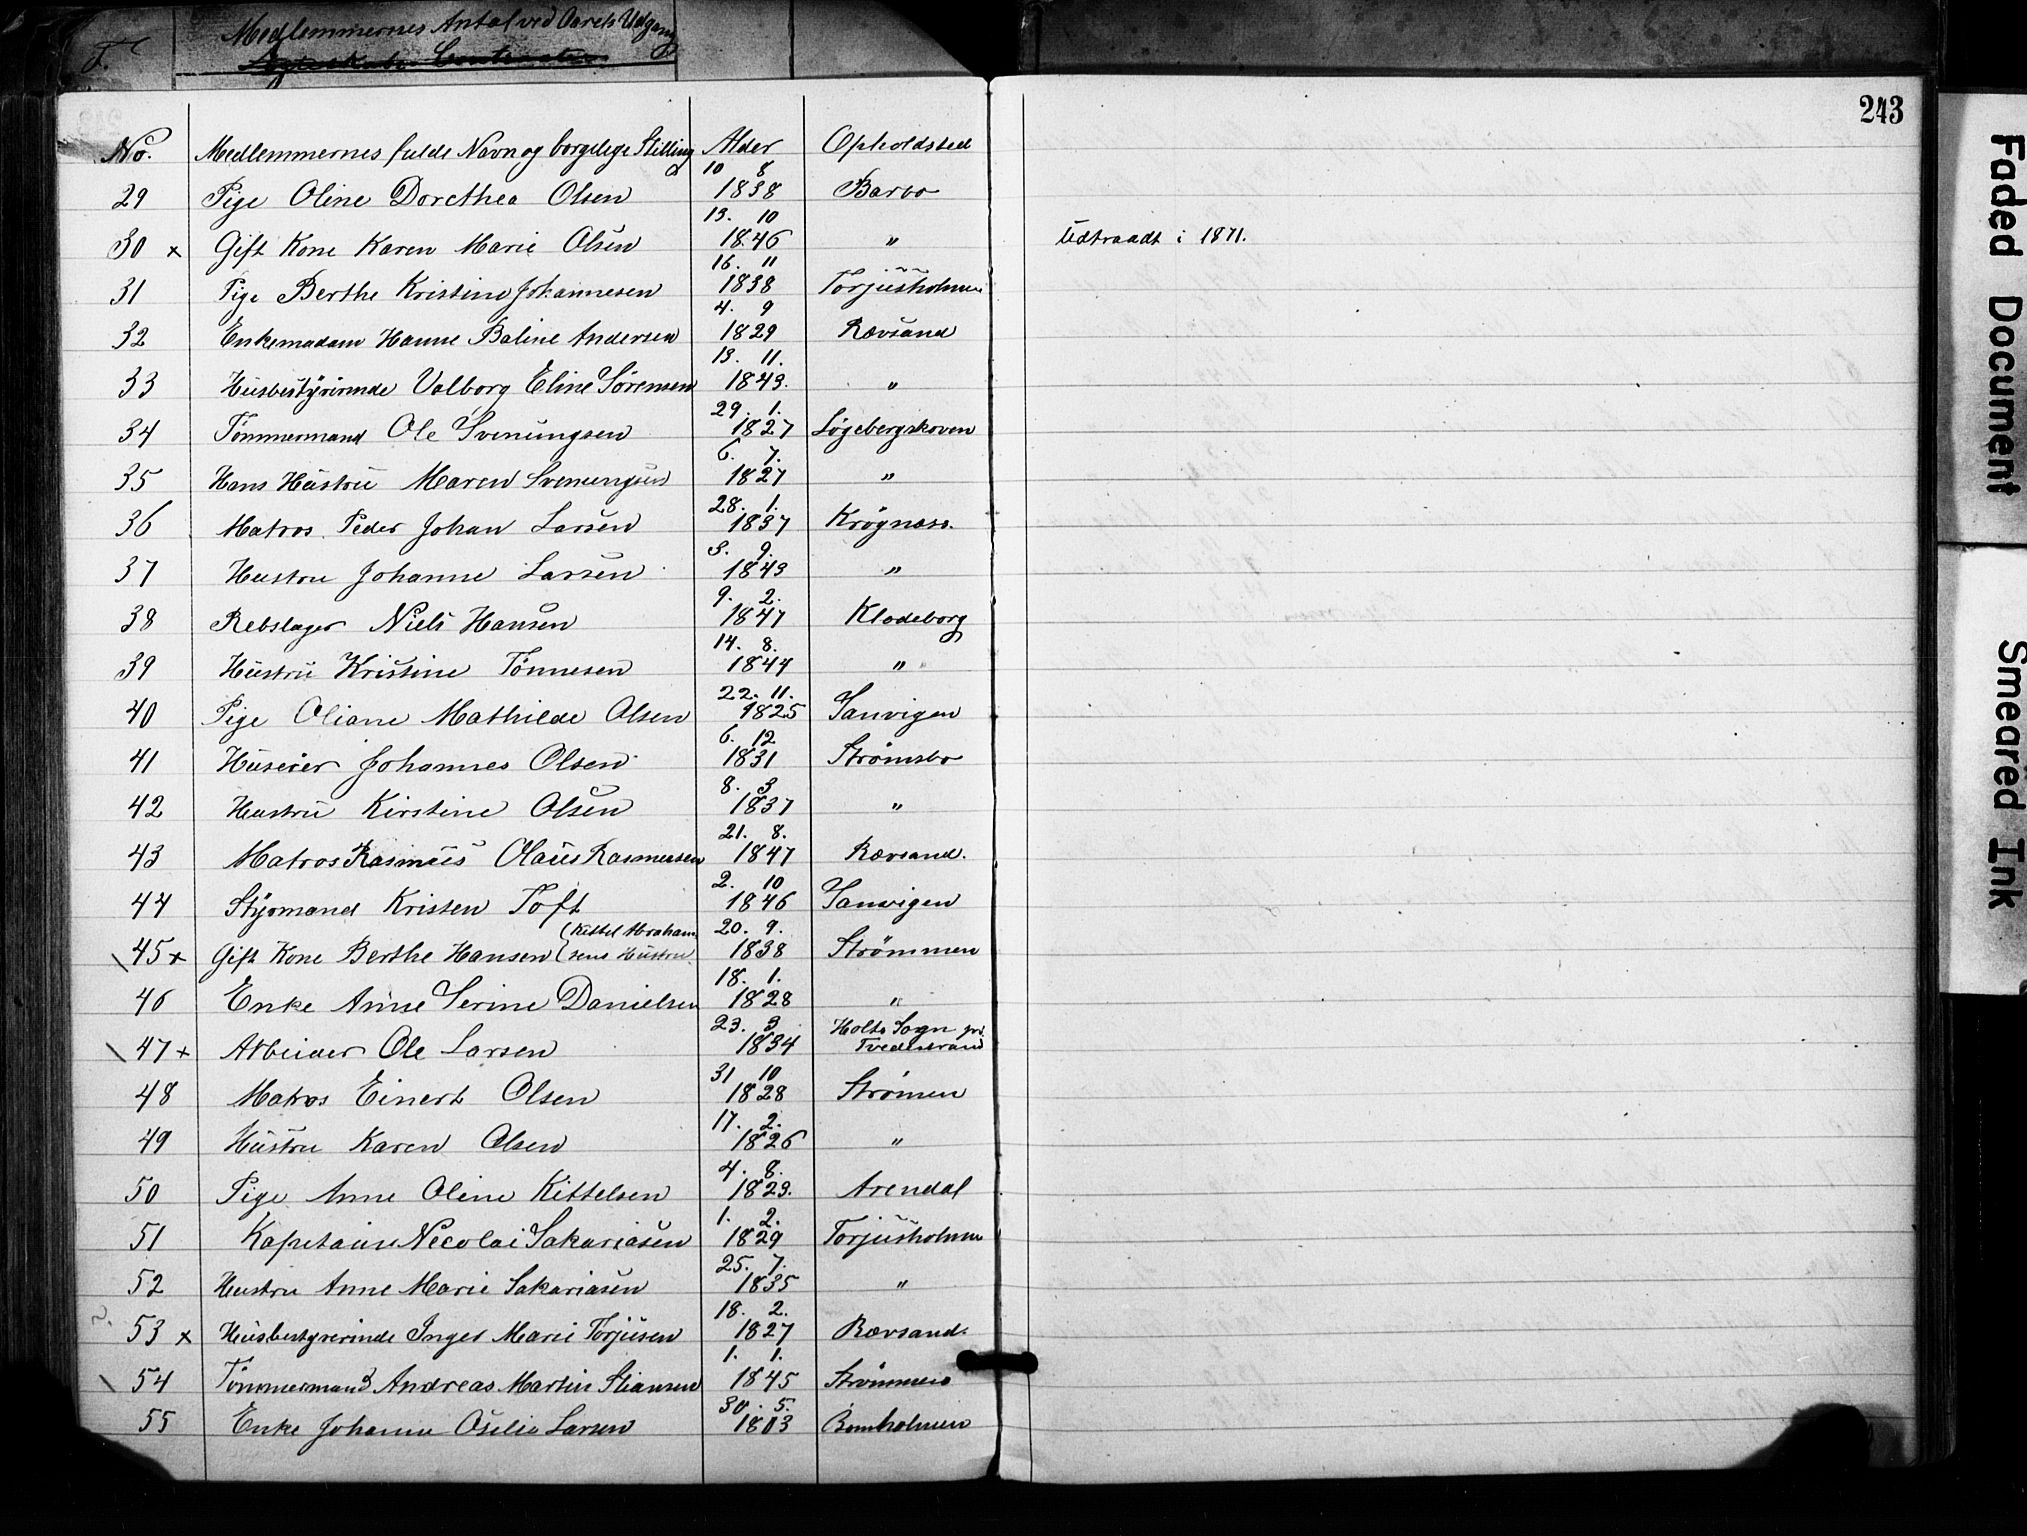 Medlemmernes Antal ved Aarets Udgang
243
No. Medlemmernes fulde Navn og borgelige Stilling Alder Opholdsted
29 Pige Oline Dorethea Olsen 10 8 1838 Barbo
30 x Gift Kone Karen Marie Olsen 13. 10 1846 " Udtraadt i 1871.
31 Pige Berthe Kristine Johannesen 16. 11 1838 Torjusholmen
32 Enkemadam Hanne Baline Andersen 4. 9 1829 Rævsand
33 Husbestyrerinde Valborg Eline Sørensen 13. 11. 1843. "
34 Tömmermand Ole Svenungsen 29. 1. 1827 Løgebergskoven
35 Hans Hustru Maren Svenungsen 6. 7. 1827 "
36 Matros Peder Johan Larsen 28. 1. 1837 Krøgnæss.
37 Hustru Johanne Larsen 3. 9. 1843 "
38 Rebslager Niels Hansen 9. 2. 1847 Klodeborg
39 Hustru Kristine Tönnesen 14. 8. 1844 "
40 Pige Oliane Mathilde Olsen 22. 11. 1825 Sanvigen
41 Huseier Johannes Olsen 6. 12 1831 Strömsbo
42 Hustru Kirstine Olsen 8. 3 1837 "
43 Matros Rasmus Olaus Rasmussen 21. 8. 1847 Rævsand.
44 Styrmand Kristen Toft 2. 10 1846 Sanvigen
45 x Gift Kone Berthe Hansen (Kittel Abraham 20. 9. 1838 Strömmen
sens Hustru
46 Enke Anne Serine Danielsen 18. 1. 1828 "
47 + Arbeider Ole Larsen 23. 3 1834 Holts Sogn pr.
Tvedestrand
48 Matros Einert Olsen 31 10 1828 Strömen
49 Hustru Karen Olsen 17. 2. 1826 "
50 Pige Anne Oline Kittelsen 4. 8. 1823. Arendal
51 Kaptaine Necolai Sakariasen 1. 2. 1829 Torjusholmen
52 Hustru Anne Marie Sakariasen 25. 7. 1835 "
53 x Husbestyrerinde Inger Marie Torjusen 18. 2. 1827 Rævsand.
54 Tömmermand Andreas Martin Stiansen 1. 1. 1845 Strömmen
55 Enke Johanne Oselie Larsen 30. 5. 1803 Bomholmen
Faded Document
Smeared Ink